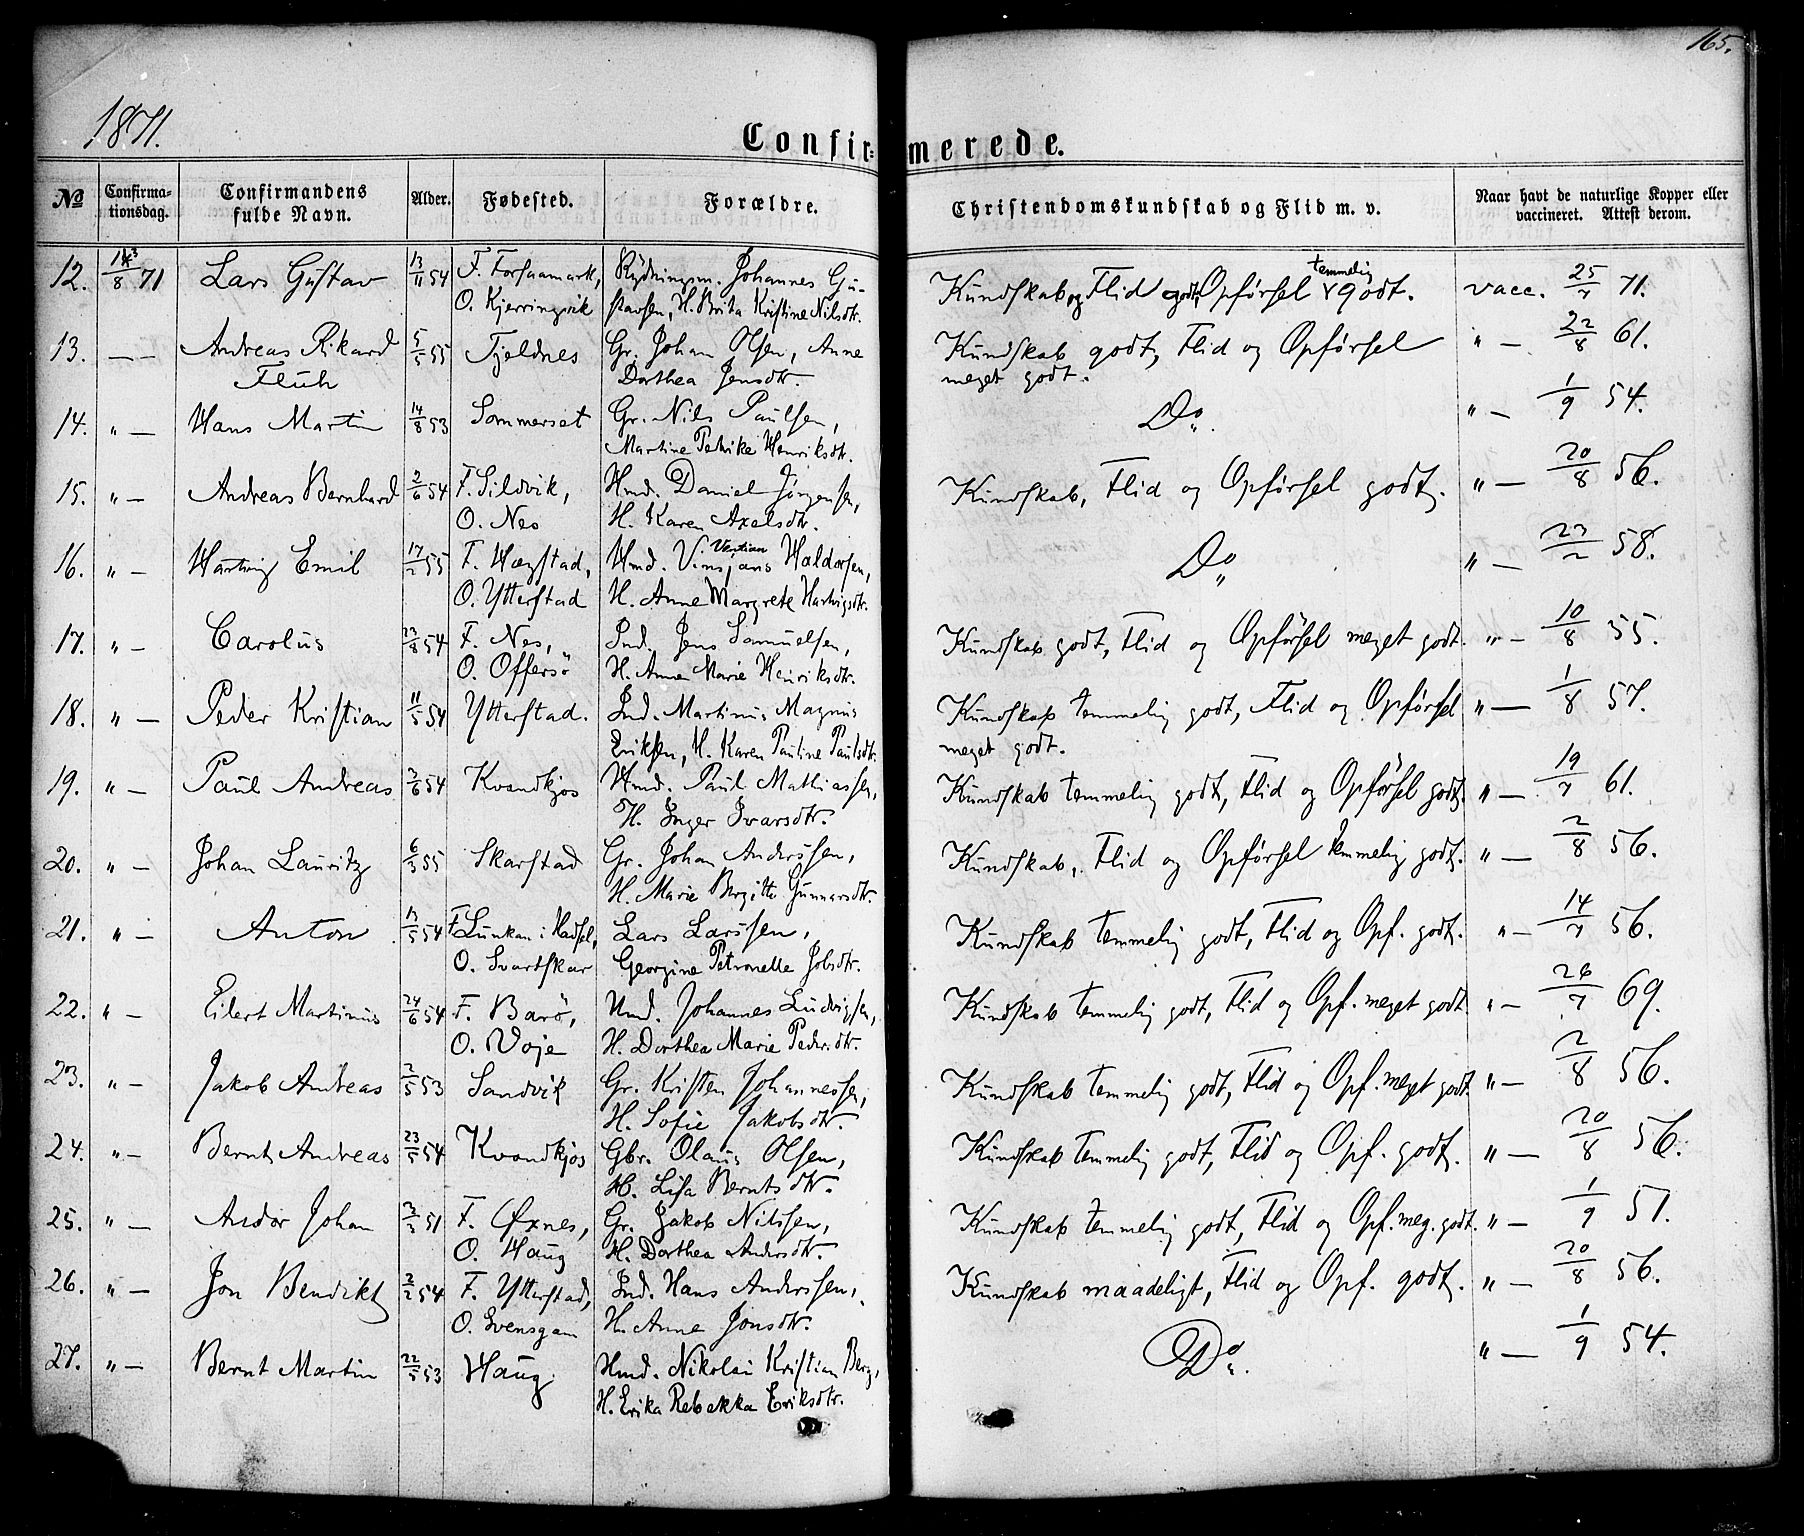 165.
1871.
Confir= merede.
No
Confirma-
tionsdag.
Confirmandens
fulde Navn.
Alder.
Fødested.
Forældre.
Christendomskundskab og Flid m. v.
Naar havt de naturlige Kopper eller
vaccineret. Attest derom.
12. 13/8 71 Lars Gustav 13/11 54 F. Forsaamark, Rydningsm. Johannes Gu- Kundskab og Flid godt, Opførsel temmelig godt. vacc. 25/7 71.
O. Kjerringvik stavsen, H. Brita Kristine Nilsdtr.
13. — — Andreas Rikard 5/5 55 Tjeldnes Gr. Johan Olsen, Anne Kundskab godt, Flid og Opførsel " — 22/8 61.
Fluh Dorthea Jensdtr. meget godt.
14. " — Hans Martin 14/8 53 Sommerset Gr. Nils Paulsen, Do. " — 1/9 54.
Martine Petrike Henriksdtr.
15. " — Andreas Bernhard 2/6 54 F. Sildvik, Hmd. Daniel Jørgensen, Kundskab, Flid og Opførsel godt. " — 20/8 56.
O. Nes H. Karen Axelsdtr.
16. " — Hartvig Emil 17/2 55 F. Hægstad, Hmd. Haldorsen, Do " — 23/2 58.
O. Ytterstad H. Anne Margrete Hartvigsdtr.
17. " — Carolus 23/8 54 F. Nes, Ind. Jens Samuelsen, Kundskab godt, Flid og Opførsel meget godt. " — 10/8 55.
O. Offersö H. Anne Marie Henriksdtr.
18. " — Peder Kristian 11/5 54 Ytterstad. Ind. Martinus Magnus Kundskab temmelig godt, Flid og Opførsel " — 1/8 57.
Eriksen, H. Karen Pauline Paulsdtr. meget godt.
19. " — Paul Andreas 3/6 54 Kvandkjos Hmd. Paul Mathiassen, Kundskab temmelig godt, Flid og Opførsel godt. " — 19/7 61.
H. Inger Ivarsdtr.
20. " — Johan Lauritz 6/3 55 Skarstad Gr. Johan Anderssen, Kundskab, Flid og Opførsel temmelig godt. " — 2/8 56.
H. Marie Birgitte Gunnarsdtr.
21. " — Anton 13/5 54 F. Lunkan i Hadsel, Lars Larssen, Kundskab temmelig godt, Flid og Opf. godt. " — 14/7 56.
O. Svartskar Georgine Petronelle Jobsdtr.
22. " — Eilert Martinus 24/6 54 F. Barö, Hmd. Johannes Ludvigsen, Kundskab temmelig godt, Flid og Opf. meget godt " — 26/7 69.
O. Voje H. Dorthea Marie Pedersdtr.
23. " — Jakob Andreas 2/5 53 Sandvik Gr. Kristen Johannessen, Kundskab temmelig godt, Flid og Opf. meget godt. " — 2/8 56.
H. Sofie Jakobsdtr.
24. " — Bernt Andreas 23/5 54 Kvandkjos Gbr. Olaus Olsen, Kundskab temmelig godt, Flid og Opf. godt. " — 20/8 56.
H. Lisa Berntsdtr.
25. " — Andor Johan 3/3 51 F. Øxnes, Gr. Jakob Nilssen, Kundskab temmelig godt, Flid og Opf. meg. godt. " — 1/9 51.
O. Haug H. Dorthea Andersdtr.
26. " — Jon Bendikt 2/2 54 F. Ytterstad, Ind. Hans Anderssen, Kundskab maadeligt, Flid og Opf. godt. " — 20/8 56.
O. Svensgam H. Anne Jonsdtr.
27. " — Bernt Martin 22/5 53 Haug Hmd. Nikolai Kristian Berg, Do. " — 1/9 54.
H. Erika Rebekka Eriksdtr.